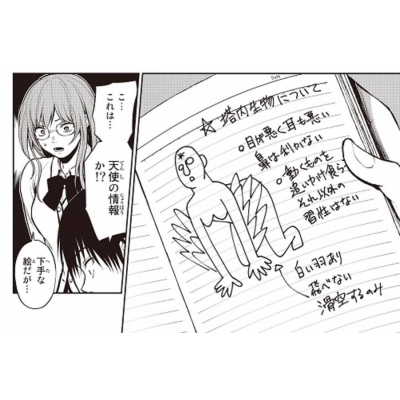 ☆塔内生物について
・目が悪く耳も悪い
鼻は利かない
・動くものを
追いかけ食らう
それ以外の
習性はない
白い羽あり
飛べない
滑空するのみ
こ…
これは…
天使の情報
か!?
下手な
絵だが…